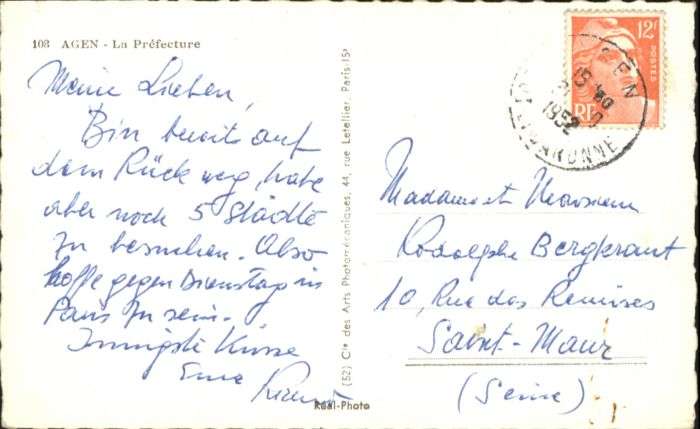 103 AGEN - La Préfecture
Meine Lieben,
Bin bereits auf
dem Rückweg, habe
aber noch 5 Städte
zu besuchen. Also
hoffe gegen Dienstag in
Paris zu sein.
Innigste Küsse
Eure
Réal-Photo
(52) Cie des Arts Photomécaniques, 44, rue Letellier, Paris-15e
12F
POSTES
RF
AGEN
15 30
1952
LOT ET GARONNE
Madame et Monsieur
Rodolphe Bergkraut
10, Rue des Remises
Saint-Maur
(Seine)